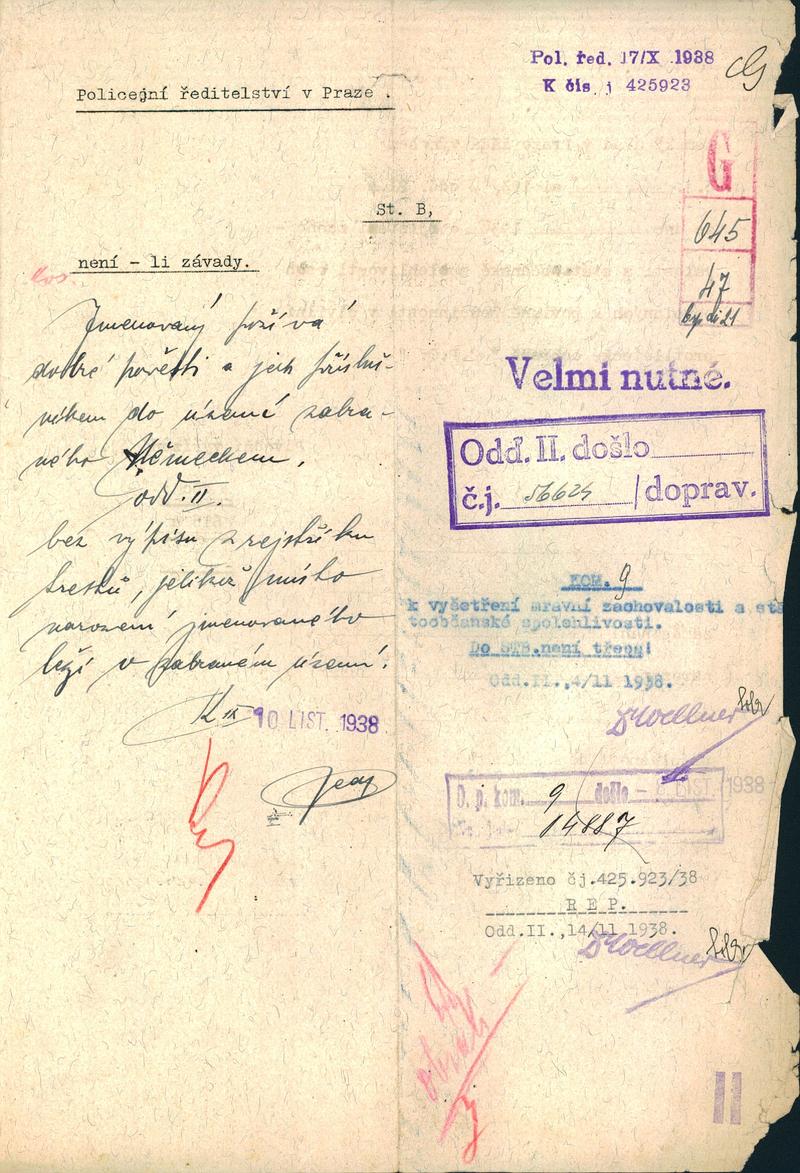 Pol. řed. 17/X 1938
K čís. j 425923
Policejní ředitelství v Praze .
G
645
47
St. B,
není - li závady.
Jmenovaný požívá
dobré pověsti a jest přísluš-
níkem do území zabra-
ného Německem.
odd. II.
bez výpisu z rejstříku
trestů, jelikož místo
narození jmenovaného
leží v zabraném území.
K IX 10 LIST. 1938
Velmi nutné.
Odd. II. došlo
č.j. 56624 / doprav.
KOM. 9
k vyšetření mravní zachovalosti a stá
toobčanské spolehlivosti.
Do STB.není třeba!
Odd.II.,4/11 1938.
D. p. kom. 9 došlo - LIST. 1938
14887
Vyřizeno čj.425.923/38
R E P.
Odd.II.,14/11 1938.
II